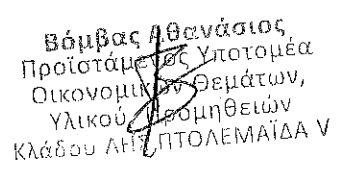 Βόμβας Αθανάσιος
Προϊστάμενος Υποτομέα
Οικονομικών Θεμάτων,
Υλικού Προμηθειών
Κλάδου ΛΗΣ ΠΤΟΛΕΜΑΪΔΑ V